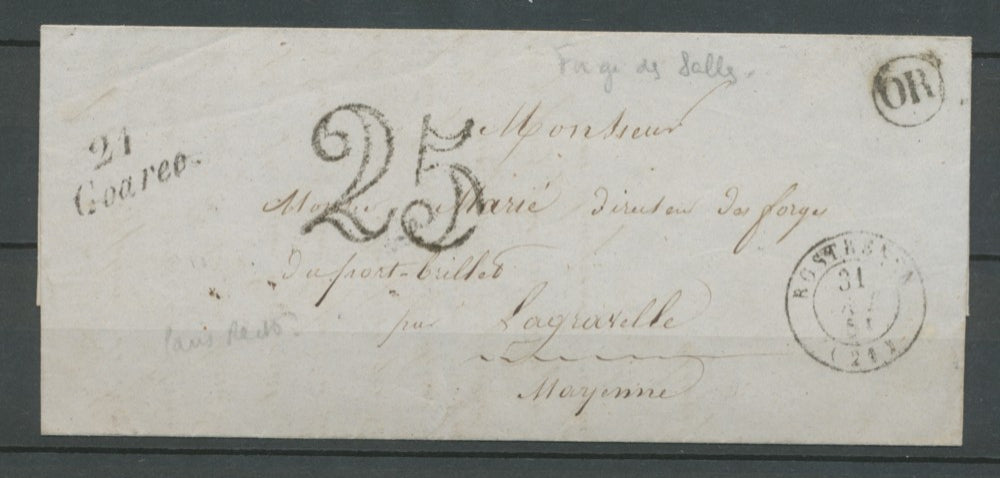 Forge des Salles.
OR
21
Goarec.
25
Monsieur
Marié directeur des forges
du port-brillet
par Lagravelle
Mayenne
ROSTRENEN
31
(21)